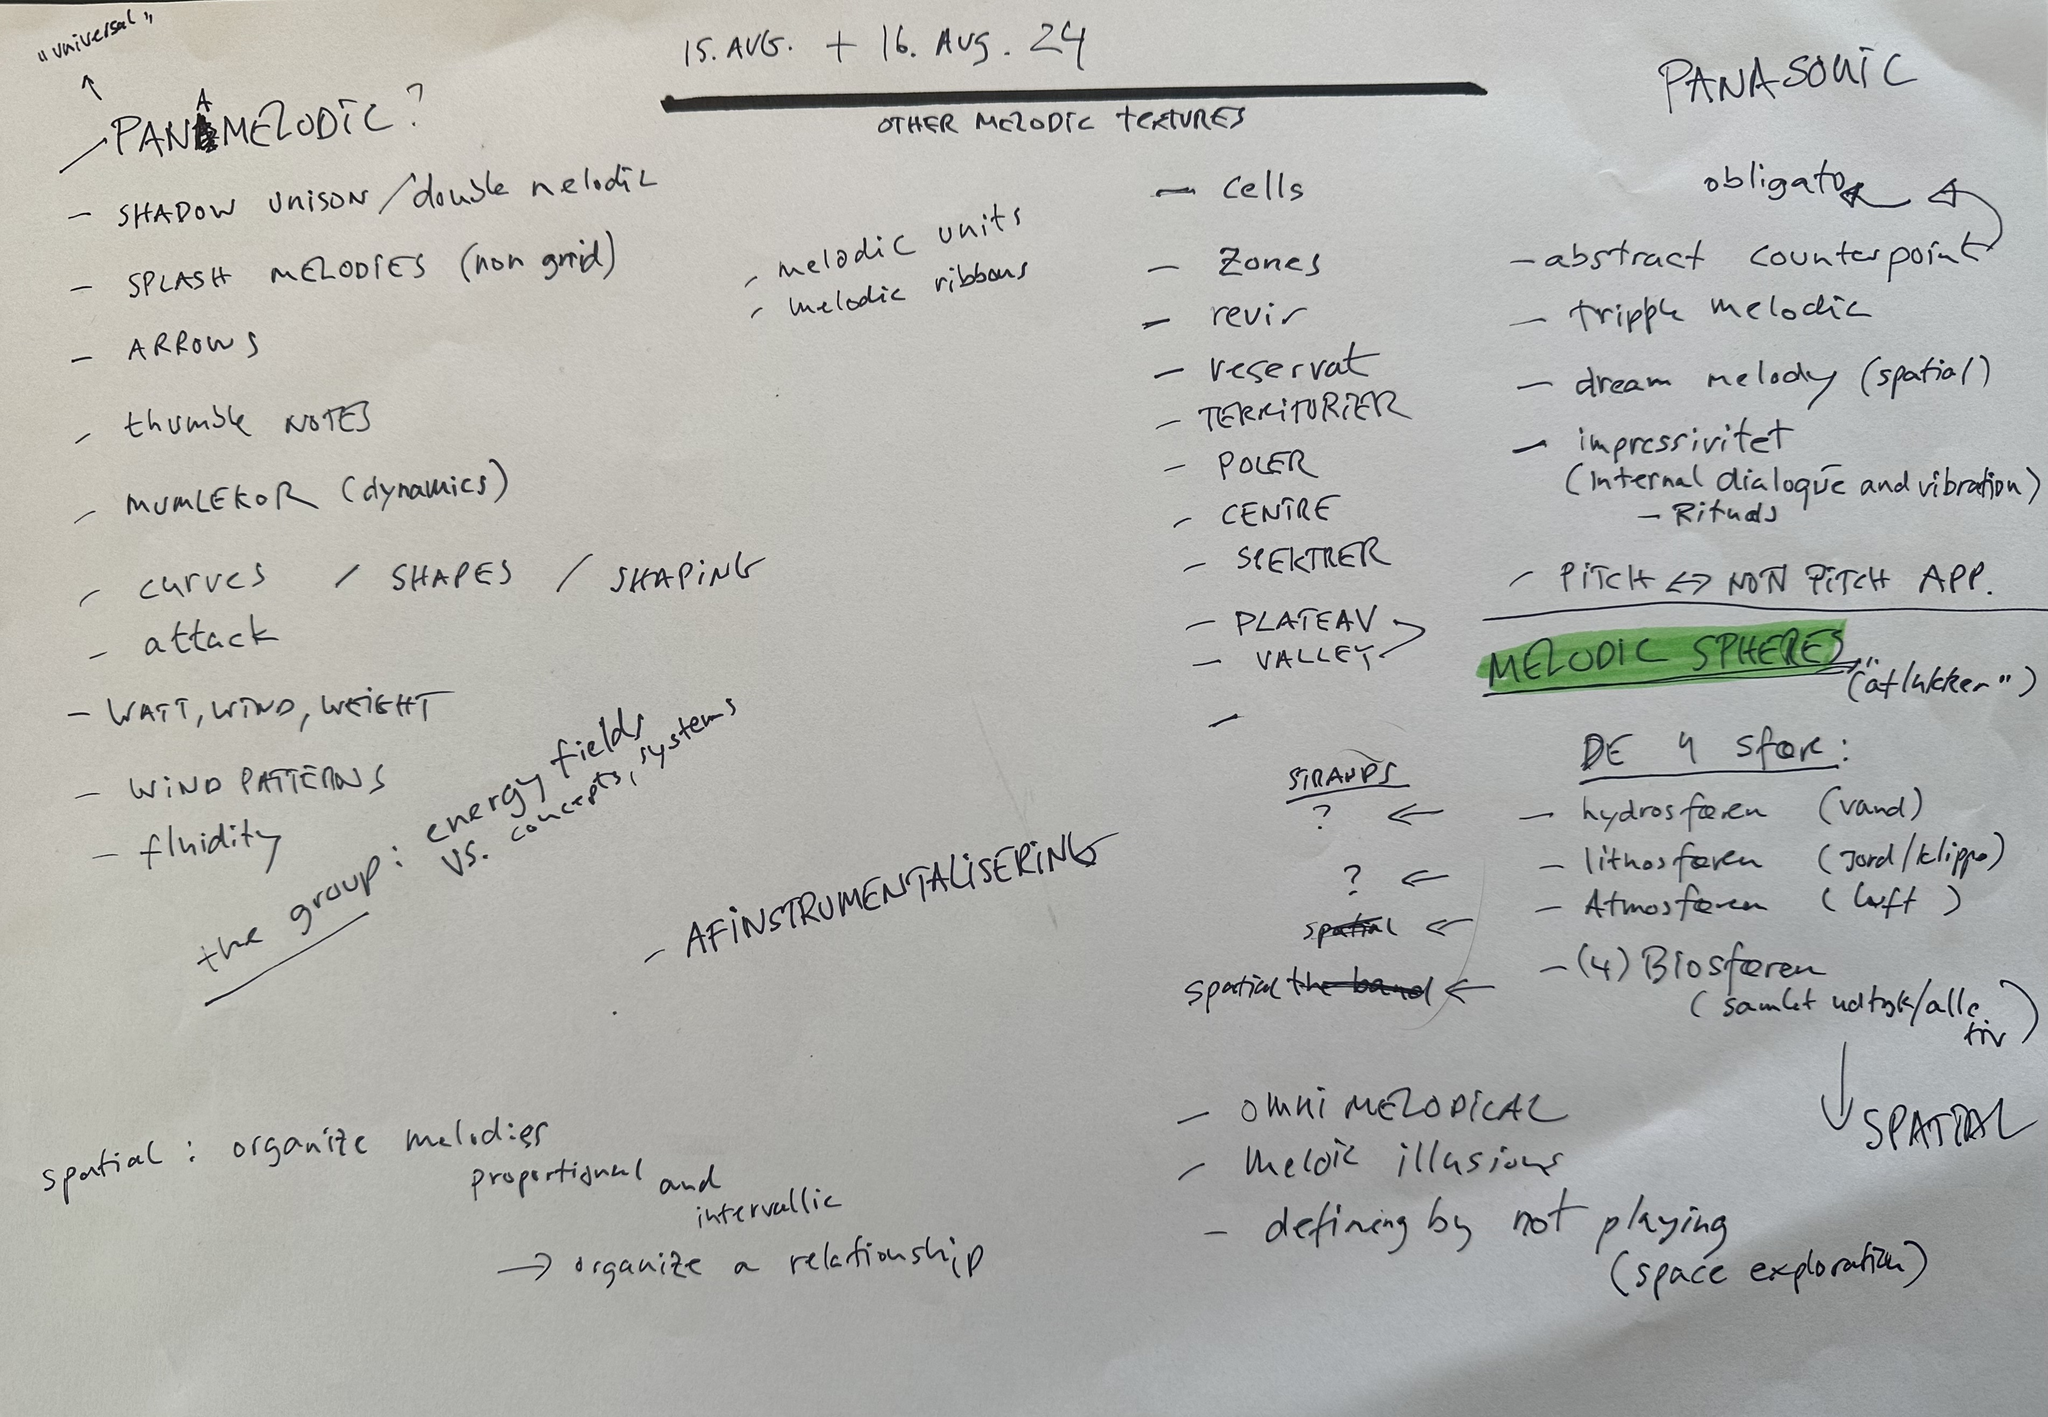 "universal"
15. AUG. + 16. AUG. 24
PANASONIC
PANAMELODIC?
OTHER MELODIC TEXTURES
- SHADOW UNISON / double melodic
- SPLASH MELODIES (non grid)
- ARROWS
- thumble NOTES
- MUMLEKOR (dynamics)
- curves / SHAPES / SHAPING
- attack
- WATT, WIND, WEIGHT
- WIND PATTERNS
- fluidity
the group: energy fields
vs. concepts, systems
- melodic units
- melodic ribbons
- AFINSTRUMENTALISERING
- cells
- Zones
- revir
- reservat
- TERRITORIER
- POLER
- CENTRE
- SPEKTRER
- PLATEAU
- VALLEY
-
obligato
- abstract counterpoint
- tripple melodic
- dream melody (spatial)
- impressivitet
(Internal dialogue and vibration)
- Rituals
- PITCH ↔ NON PITCH APP.
MELODIC SPHERES
STRANDS
? ←
? ←
spatial ←
spatial the band ←
DE 4 sfær:
- hydrosfæren (vand)
- lithosfæren (Jord/klippe)
- Atmosfæren (luft)
- (4) Biosfæren
(samlet udtryk/alle
liv)
↓ SPATIAL
- OMNI MELODICAL
- Meloic illusions
- defining by not playing
(space exploration)
spatial: organize melodies
proportional and
intervallic
→ organize a relationship